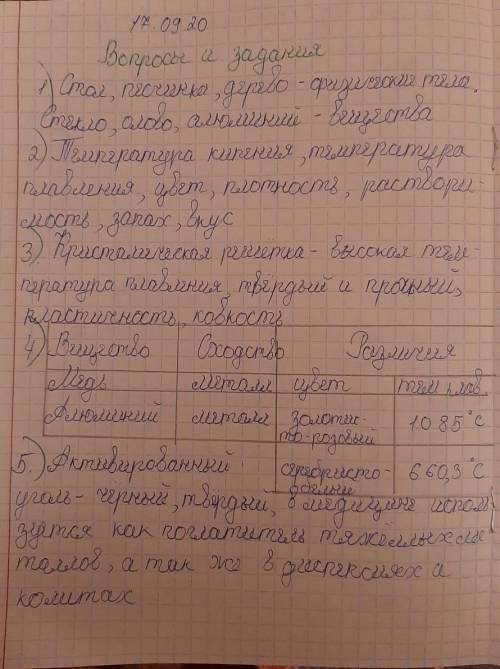 17.09.20
Вопросы и задания
1) Стол, песчинка, дерево - физические тела.
Стекло, олово, алюминий - вещества
2) Температура кипения, температура
плавления, цвет, плотность, раствори-
мость, запах, вкус
3) Кристалическая решетка - высокая тем-
пература плавления, твёрдый и прочный,
пластичность, ковкость
4) Вещество Сходство Различия
Медь металл цвет тем плав.
Алюминий металл золотис-
то-розовый 1085°C
5.) Активированный серебристо-
белый 660,3°C
уголь - чёрный, твёрдый, в медицине исполь
зуется как поглатитель тяжёлых ме
таллов, а так же в диспепсиях и
колитах